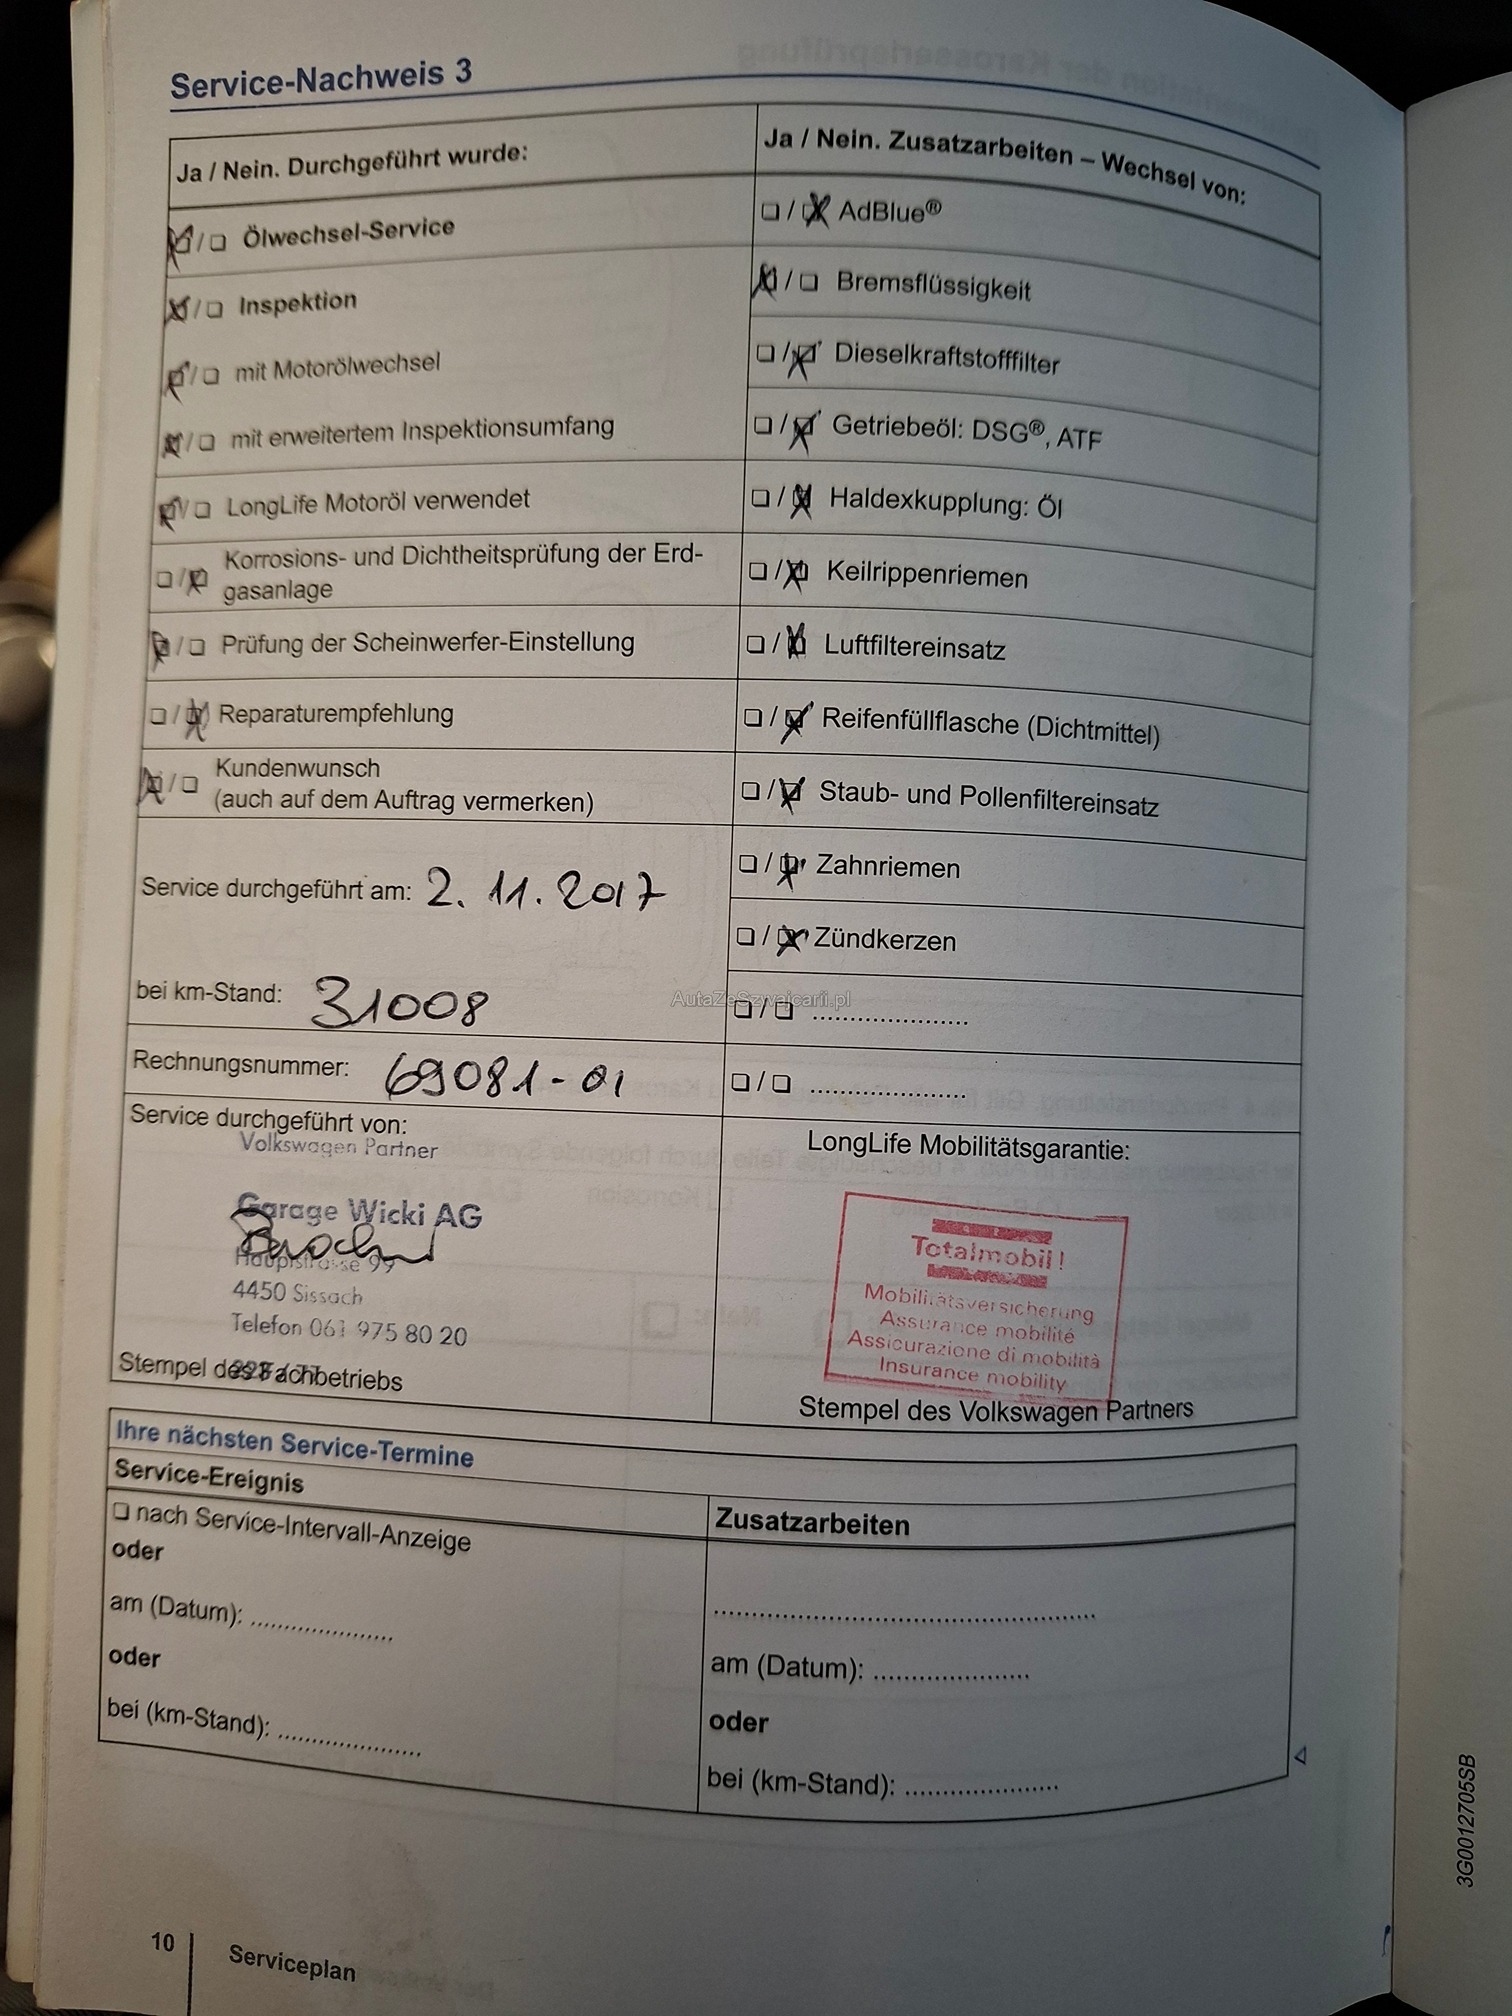 Service-Nachweis 3
Ja / Nein. Durchgeführt wurde:
☒/☐ Ölwechsel-Service
☒/☐ Inspektion
☒/☐ mit Motorölwechsel
☒/☐ mit erweitertem Inspektionsumfang
☒/☐ LongLife Motoröl verwendet
☐/☒ Korrosions- und Dichtheitsprüfung der Erd-
gasanlage
☒/☐ Prüfung der Scheinwerfer-Einstellung
☐/☒ Reparaturempfehlung
☒/☐ Kundenwunsch
(auch auf dem Auftrag vermerken)
Service durchgeführt am: 2. 11. 2017
bei km-Stand: 31008
Rechnungsnummer: 69081-01
Service durchgeführt von:
Volkswagen Partner
Garage Wicki AG
Hauptstrasse 99
4450 Sissach
Telefon 061 975 80 20
Stempel des Fachbetriebs
Ja / Nein. Zusatzarbeiten – Wechsel von:
☐/☒ AdBlue®
☒/☐ Bremsflüssigkeit
☐/☒ Dieselkraftstofffilter
☐/☒ Getriebeöl: DSG®, ATF
☐/☒ Haldexkupplung: Öl
☐/☒ Keilrippenriemen
☐/☒ Luftfiltereinsatz
☐/☒ Reifenfüllflasche (Dichtmittel)
☐/☒ Staub- und Pollenfiltereinsatz
☐/☒ Zahnriemen
☐/☒ Zündkerzen
AutaZeSzwajcarii.pl
☐/☐ .....................
☐/☐ .....................
LongLife Mobilitätsgarantie:
Totalmobil!
Mobilitätsversicherung
Assurance mobilité
Assicurazione di mobilità
Insurance mobility
Stempel des Volkswagen Partners
Ihre nächsten Service-Termine
Service-Ereignis
☐ nach Service-Intervall-Anzeige
oder
am (Datum): .....................
oder
bei (km-Stand): .....................
Zusatzarbeiten
....................................................
am (Datum): .....................
oder
bei (km-Stand): .....................
3G0012705SB
10
Serviceplan